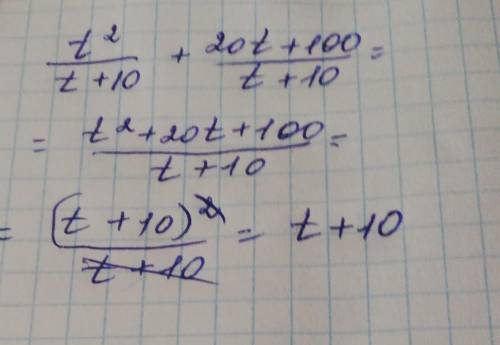 t²/(t+10) + (20t+100)/(t+10) =
= (t²+20t+100)/(t+10) =
= (t+10)²/(t+10) = t+10